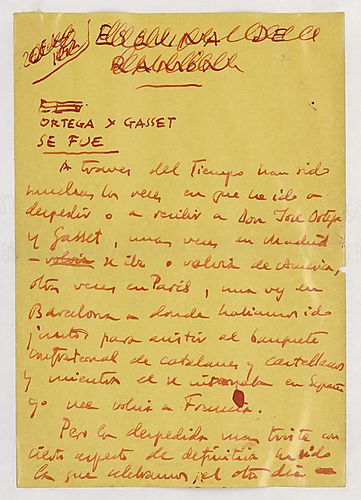 ESQUINA DE
ORTEGA Y GASSET
SE FUE
A traves del Tiempo han sido
muchas las veces en que he ido a
despedir o a recibir a Don José Ortega
y Gasset, unas veces en Madrid
– volvia se iba o volvia de America,
otra veces en París, una vez en
Barcelona a donde habiamos ido
juntos para asistir al banquete
de catalanes y castellanos
y mientras el se en España
yo me volvia a Francia.
Pero la despedida mas triste con
cierto aspecto de definitiva ha sido
la que celebramos el otro dia –